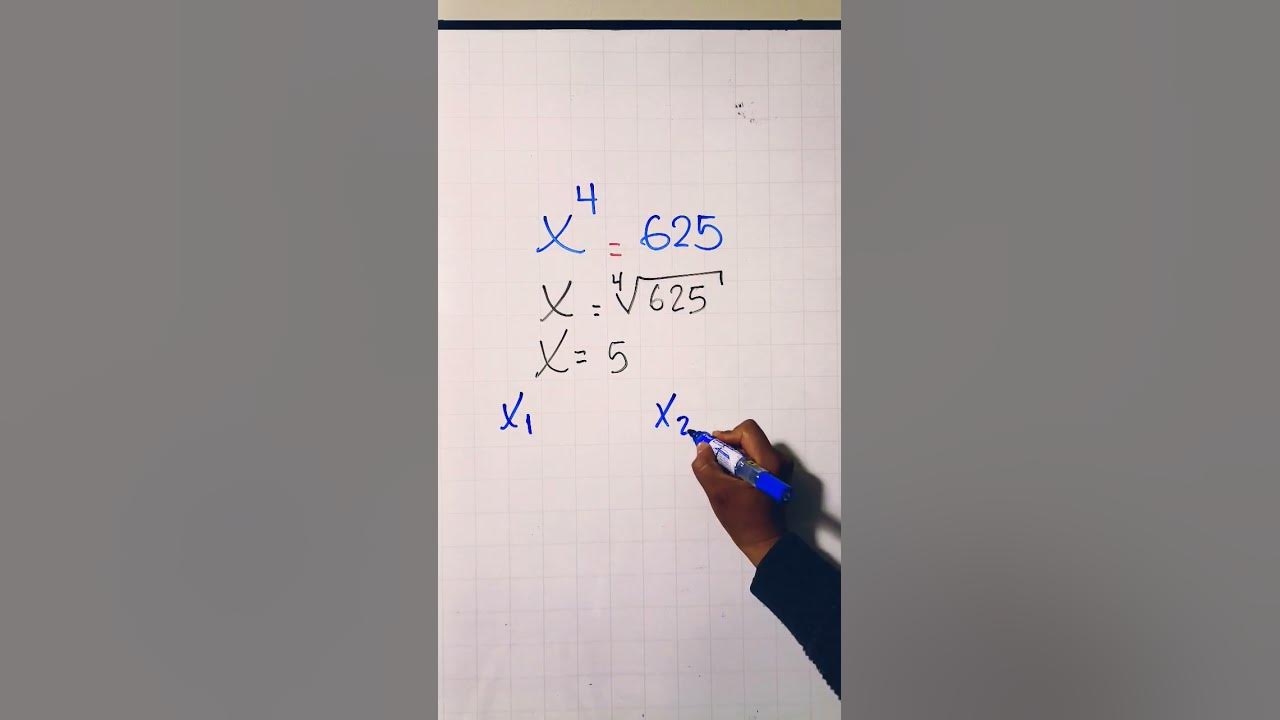 x⁴ = 625
x = ⁴√625
x = 5
x₁ x₂